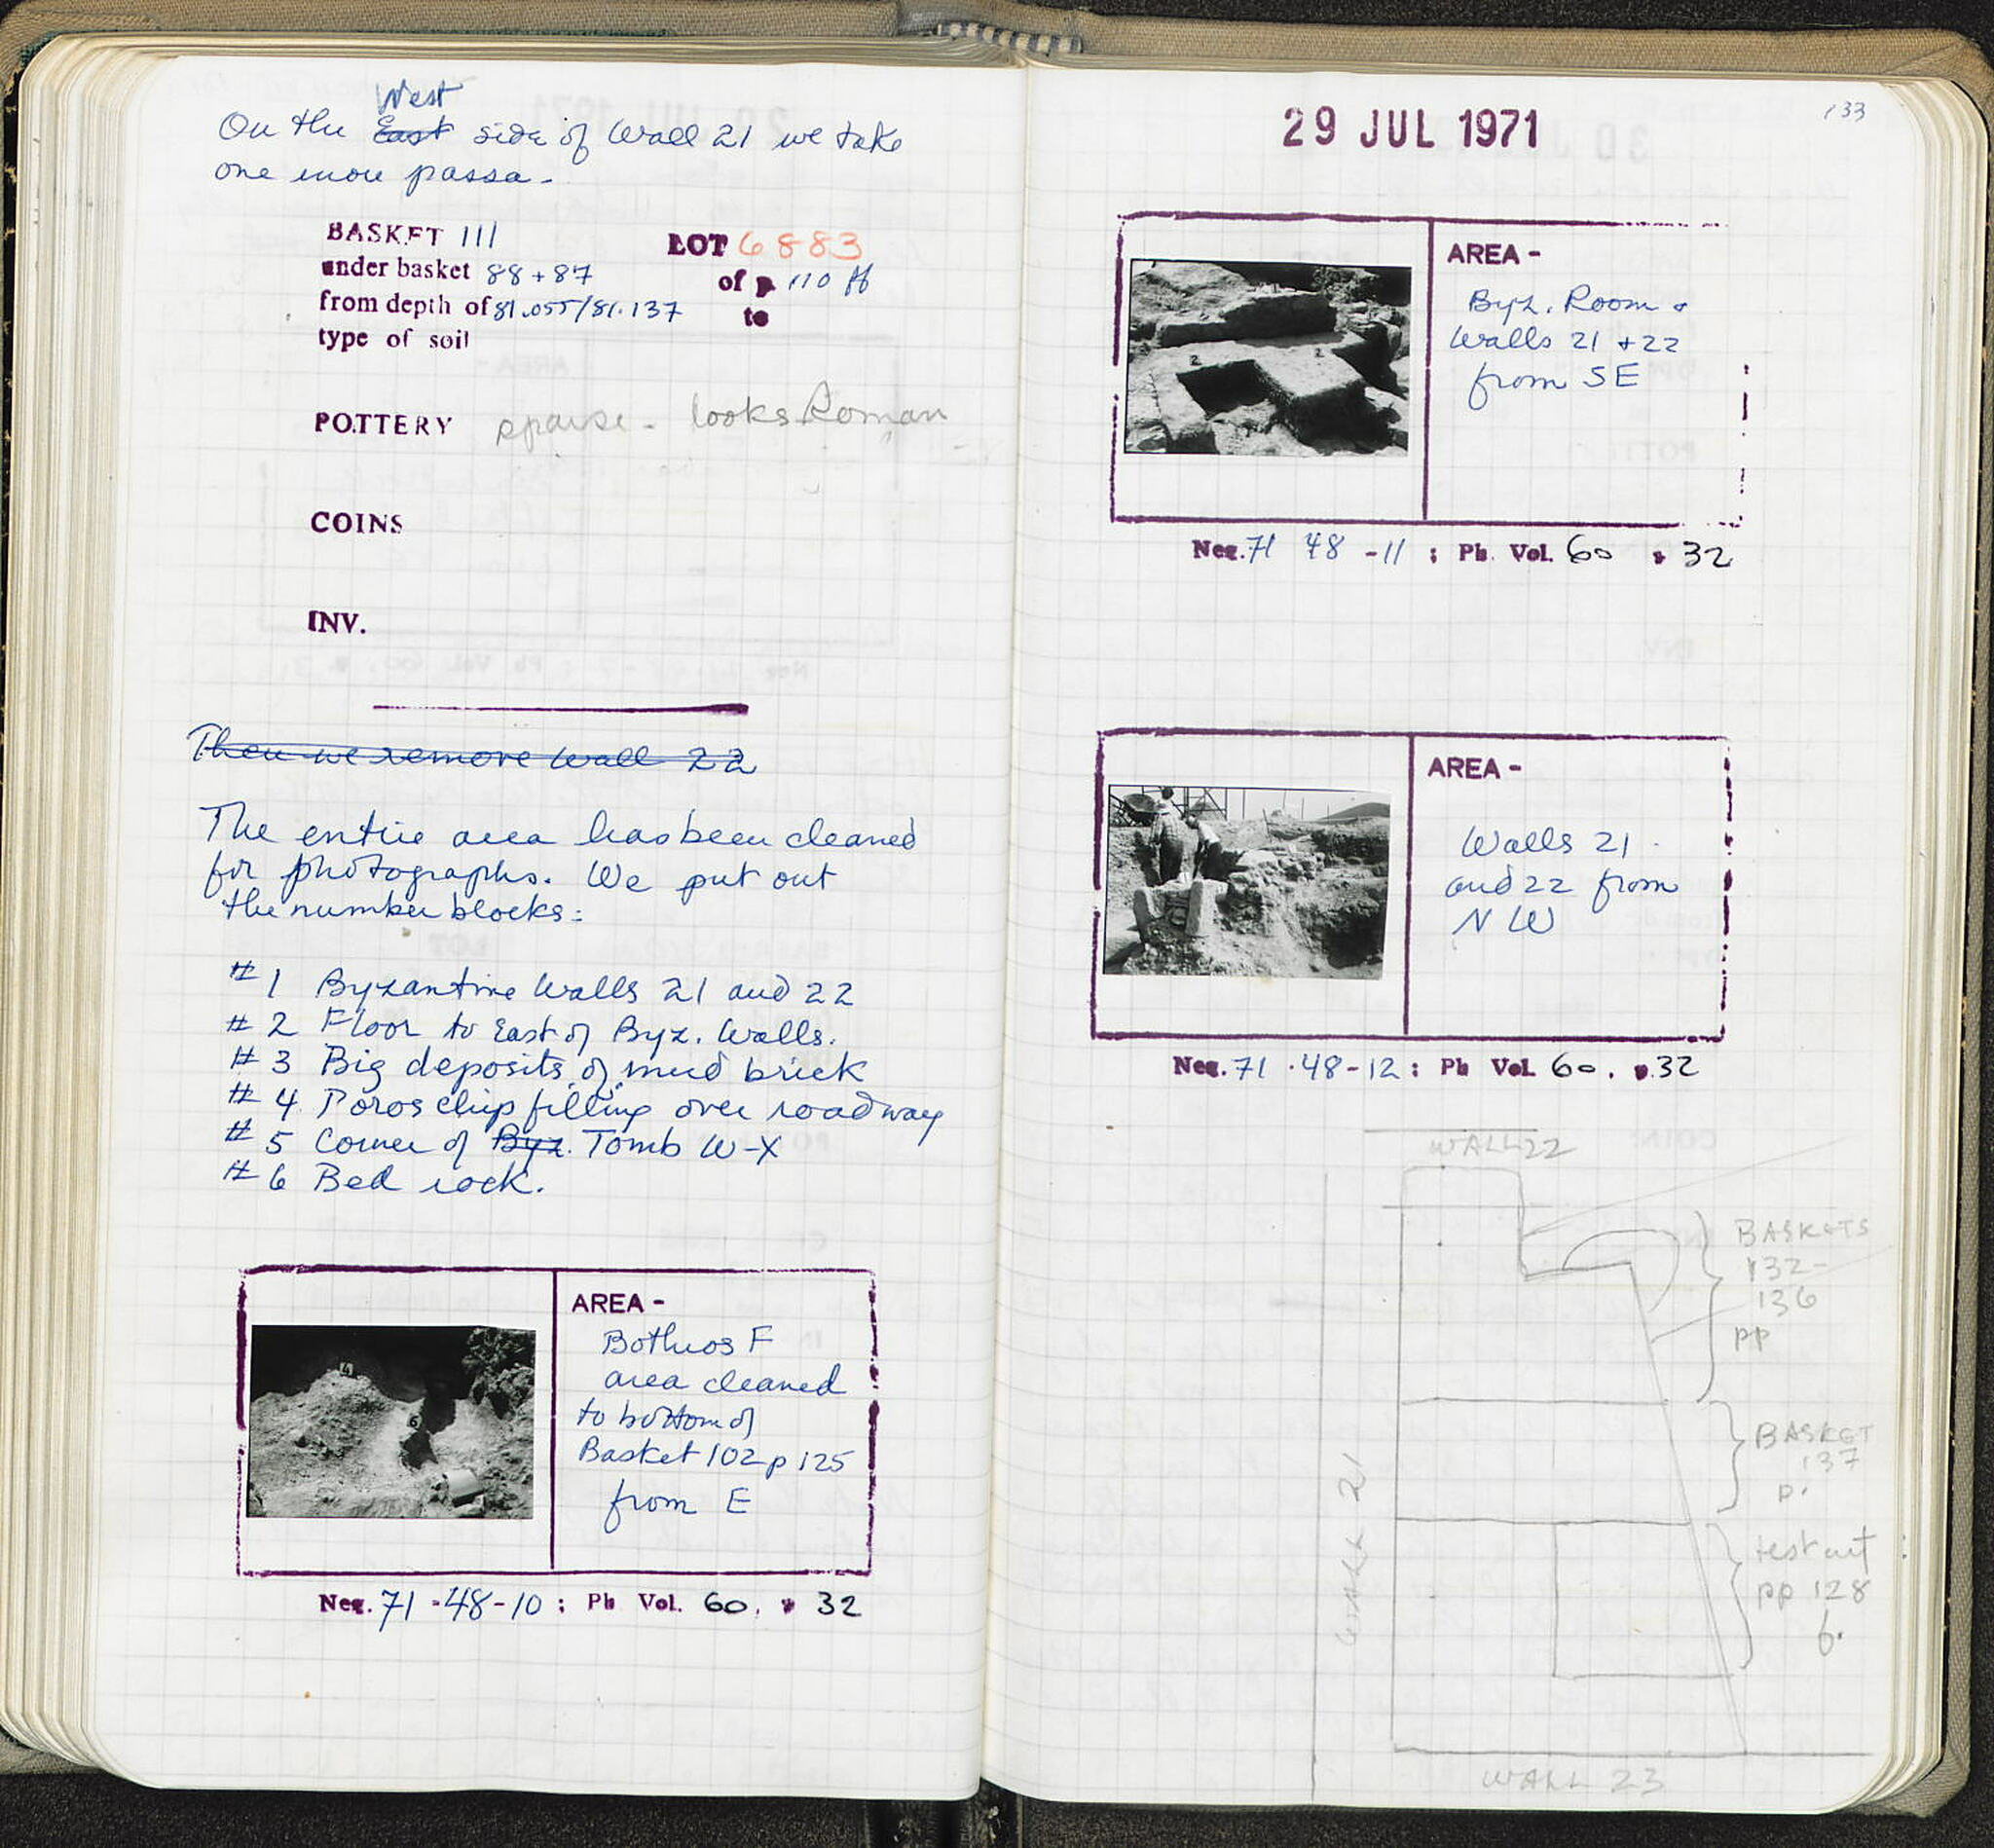 West
On the East side of Wall 21 we take
one more passa-
BASKET 111 LOT 6883
under basket 88+87 of p 110 ff
from depth of 81.055/81.137 to
type of soil
POTTERY sparse - looks Roman
COINS
INV.
Then we remove Wall 22
The entire area has been cleaned
for photographs. We put out
the number blocks:
#1 Byzantine Walls 21 and 22
#2 Floor to East of Byz. Walls.
#3 Big deposits of mud brick
#4 Poros chip filling over roadway
#5 Corner of Byz. Tomb W-X
#6 Bed rock.
4
6
AREA -
Bothros F
area cleaned
to bottom of
Basket 102 p 125
from E
Neg. 71 -48-10 ; Ph Vol. 60. p 32
133
29 JUL 1971
2 2
AREA -
Byz. Room &
Walls 21 + 22
from SE
Neg. 71 48 -11 ; Ph. Vol. 60 p 32
AREA -
Walls 21
and 22 from
N W
Neg. 71 .48-12 ; Ph Vol. 60. p. 32
WALL 22
BASKETS
132-
136
pp
BASKET
137
p.
test cut
pp 128
f.
WALL 21
WALL 23